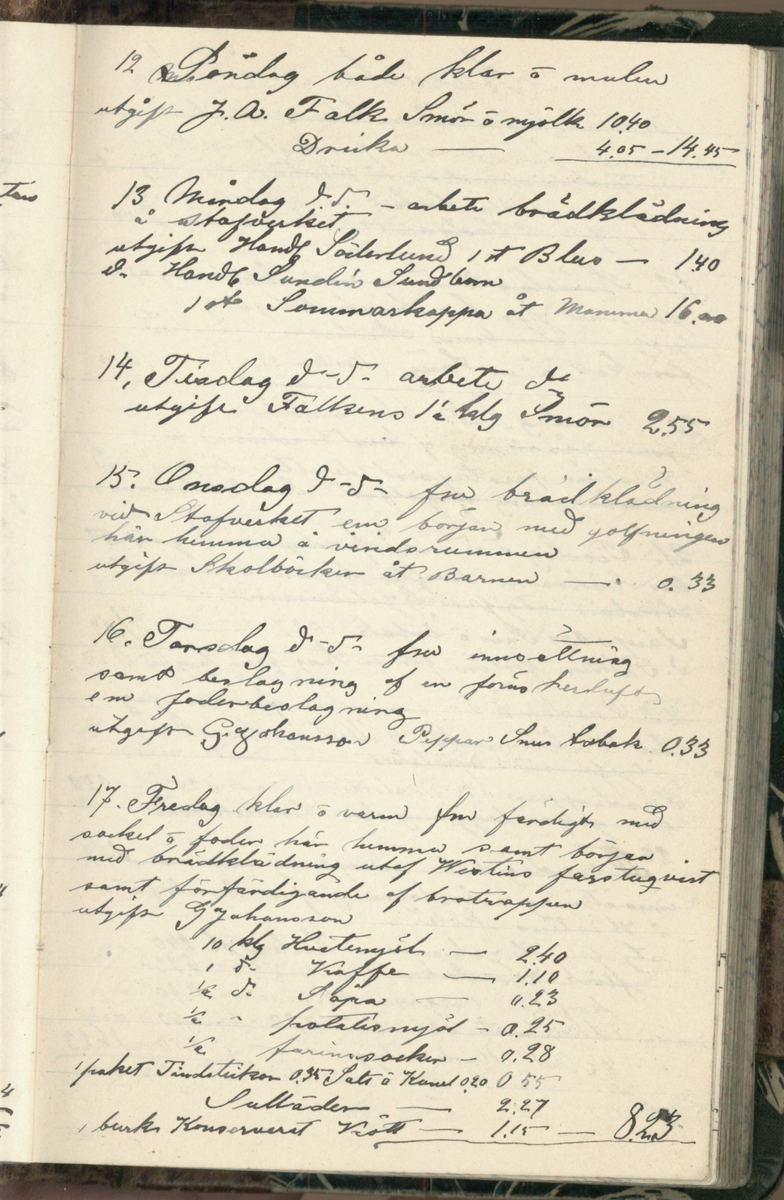 12 Söndag både klar ō mulen
utgift J. A. Falk Smör ō mjölk 10.40
Dricka — 4.05 – 14.45
13 Måndag d-d. – arbete brädklädning
å stafverket
utgift Handl Söderlund 1 st Blus — 1.40
d- Handl Sundin Sundborn
1 st Sommarkappa åt Mamma 16.00
14, Tisdag d-d- arbete do
utgift Falkens 1½ klg Smör 2.55
15. Onsdag d-d- fm brädklädning
vid Stafverket em början med golfningen
här hemma å vindsrummen
utgift Skolböcker åt Barnen — 0.33
16. Torsdag d-d- fm innsättning
samt beslagning af en
em foderbeslagning
utgift G Johansson Peppar Snus tobak 0.33
17. Fredag klar ō varm fm färdigt med
sockel ō foder här hemma samt början
med brädklädning utaf Wistins farstuqvist
samt förfärdigande af brotrappen
utgift G Johansson
10 klg Hvetemjöl — 2.40
1 d- Kaffe — 1.10
½ d- Såpa — 0.23
½ - potatismjöl – 0.25
½ farinsocker – 0.28
1 paket Tindstickor 0.35 Salt ō Kanel 0.20 0 55
Sulläder — 2.27
1 burk Konserveret Kött — 1.15 — 8.23